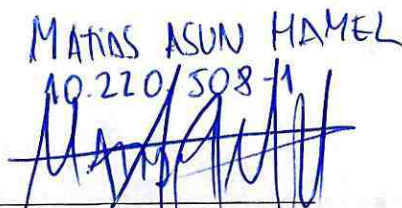 MATIAS ASUN HAMEL
10.220.508-1